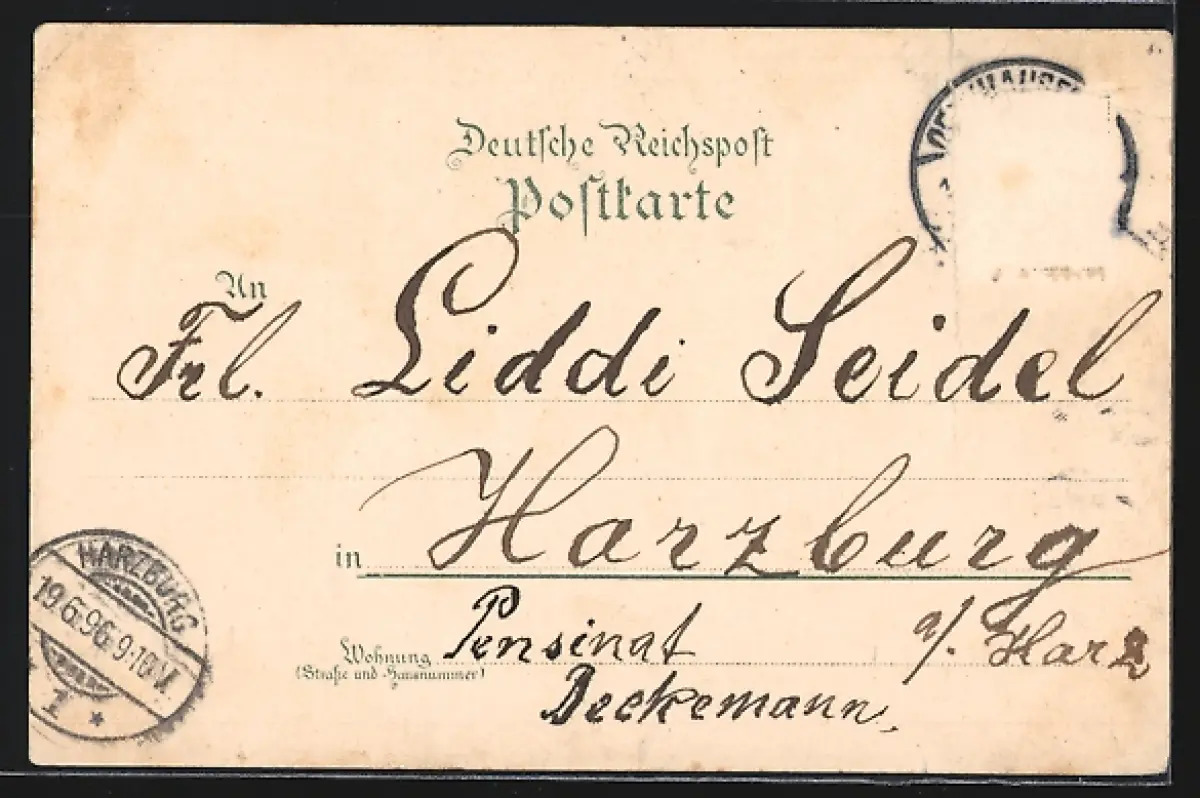 Deutsche Reichspost
Postkarte
An
Frl. Liddi Seidel
in Harzburg
a/. Harz
Wohnung Pensinat
(Straße und Hausnummer)
Deckemann.
HARZBURG
19.6.96.9-10.V.
1 *